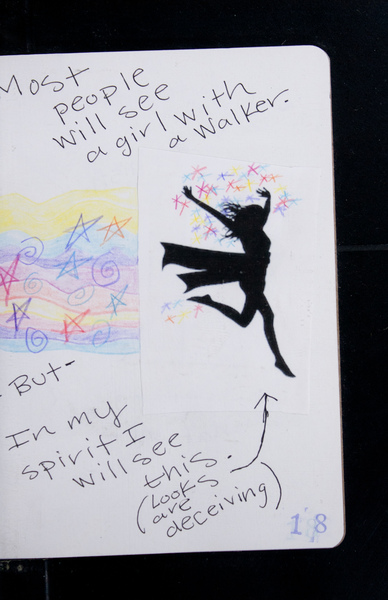 Most
people
will see
a girl with
a walker.
- But -
In my
spirit I
will see
this.
(Looks
are
deceiving)
18